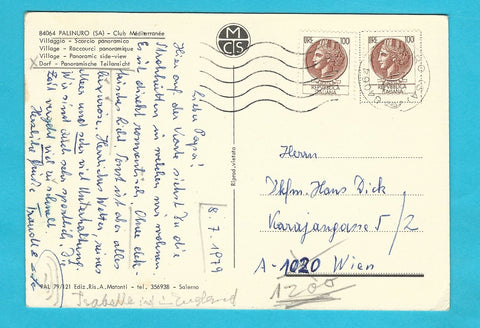 84064 PALINURO (SA) - Club Méditerranée
Villaggio - Scorcio panoramico
Village - Raccourci panoramique
Village - Panoramic side-view
Dorf - Panoramische Teilansicht
M
C S
LIRE 100
LIRE 100
REPVBBLICA
ITALIANA
REPVBBLICA
ITALIANA
Liebe Papa!
Hier auf der Karte siehst Du die
Strohhütten in welchen wir wohnen.
Es ist direkt romantisch. Ohne elek-
trisches Licht. Sonst ist aber alles
Herrliches Wetter, reines
Meer und sehr viel Unterhaltung.
Wir sind auch sehr sportlich. Die
Zeit vergeht viel zu schnell.
Herzliche
8.7.1979
Riprod. vietata
Herrn
Dkfm. Hans Dick
Karajangasse 5/2
A-1020 Wien
1200
PAL 79/121 Ediz. Ris. A. Matonti - tel. 356938 - Salerno
Isabella ist in England